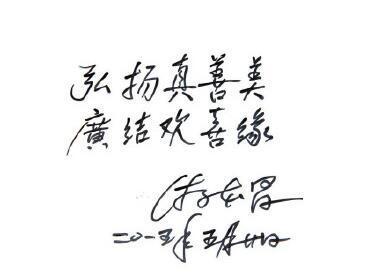 弘扬真善美
廣结欢喜缘
二〇一五年五月